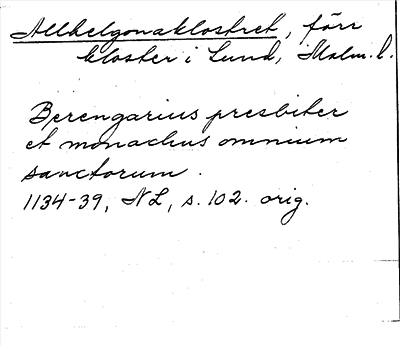 Allhelgonaklostret, förr
kloster i Lund, Malm. l.
Berengarius presbiter
et monachus omnium
sanctorum.
1134-39, NL, s. 102. orig.